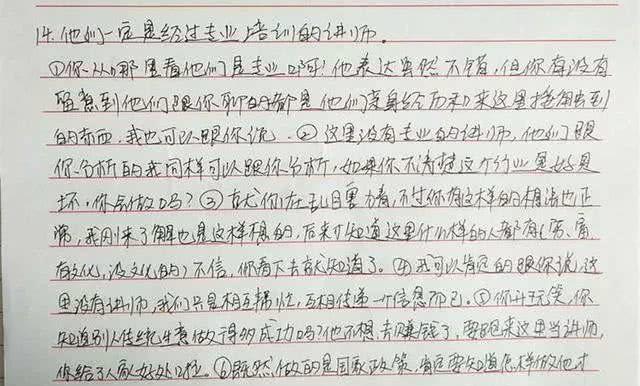 14.他们一定是经过专业培训的讲师。
①你从哪里看他们是专业的呀!他表达虽然不错,但你有没有
留意到他们跟你聊的都是他们亲身经历和来这里接触到
的东西,我也可以跟你说。②这里没有专业的讲师,他们跟
你分析的我同样可以跟你分析,如果你不清楚这个行业是好是
坏,你会做吗?③就你在那厉害看,不过你有这样的想法也正
常,我刚来了解也是这样想的,后来才知道这里什么样的人都有(穷、富
有文化,没文化的)不信,你看下去就知道了。④我可以肯定的跟你说,这
里没有讲师,我们只是相互帮忙,互相传递一个信息而已。⑤你开玩笑,你
知道别人传统生意做得多成功吗?他不想去赚钱了,要跑来这里当讲师,
你给了人家好处啦。⑥既然做的是国家政策,肯定要知道怎样做他才